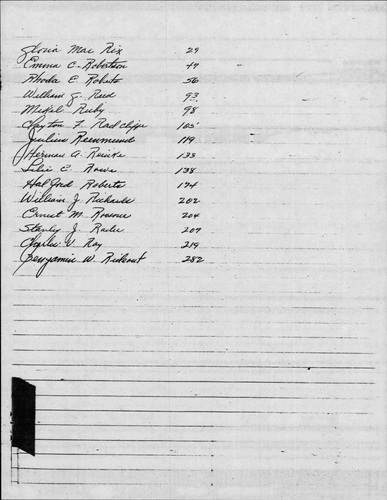 Gloria Mae Rix 29
Emma C. Robertson 47
Rhoda E. Roberts 56
William J. Reed 93
Mikel Ruby 98
Clayton L. Radcliffe 105
Julius Reenmund 119
Herman A. Reinke 133
Lilie E. Rowe 138
Hal Ford Roberts 174
William J. Richards 202
Ernest M. 204
Stanley J. Rader 207
Charles V. Ray 219
Benjamin W. Rideout 282